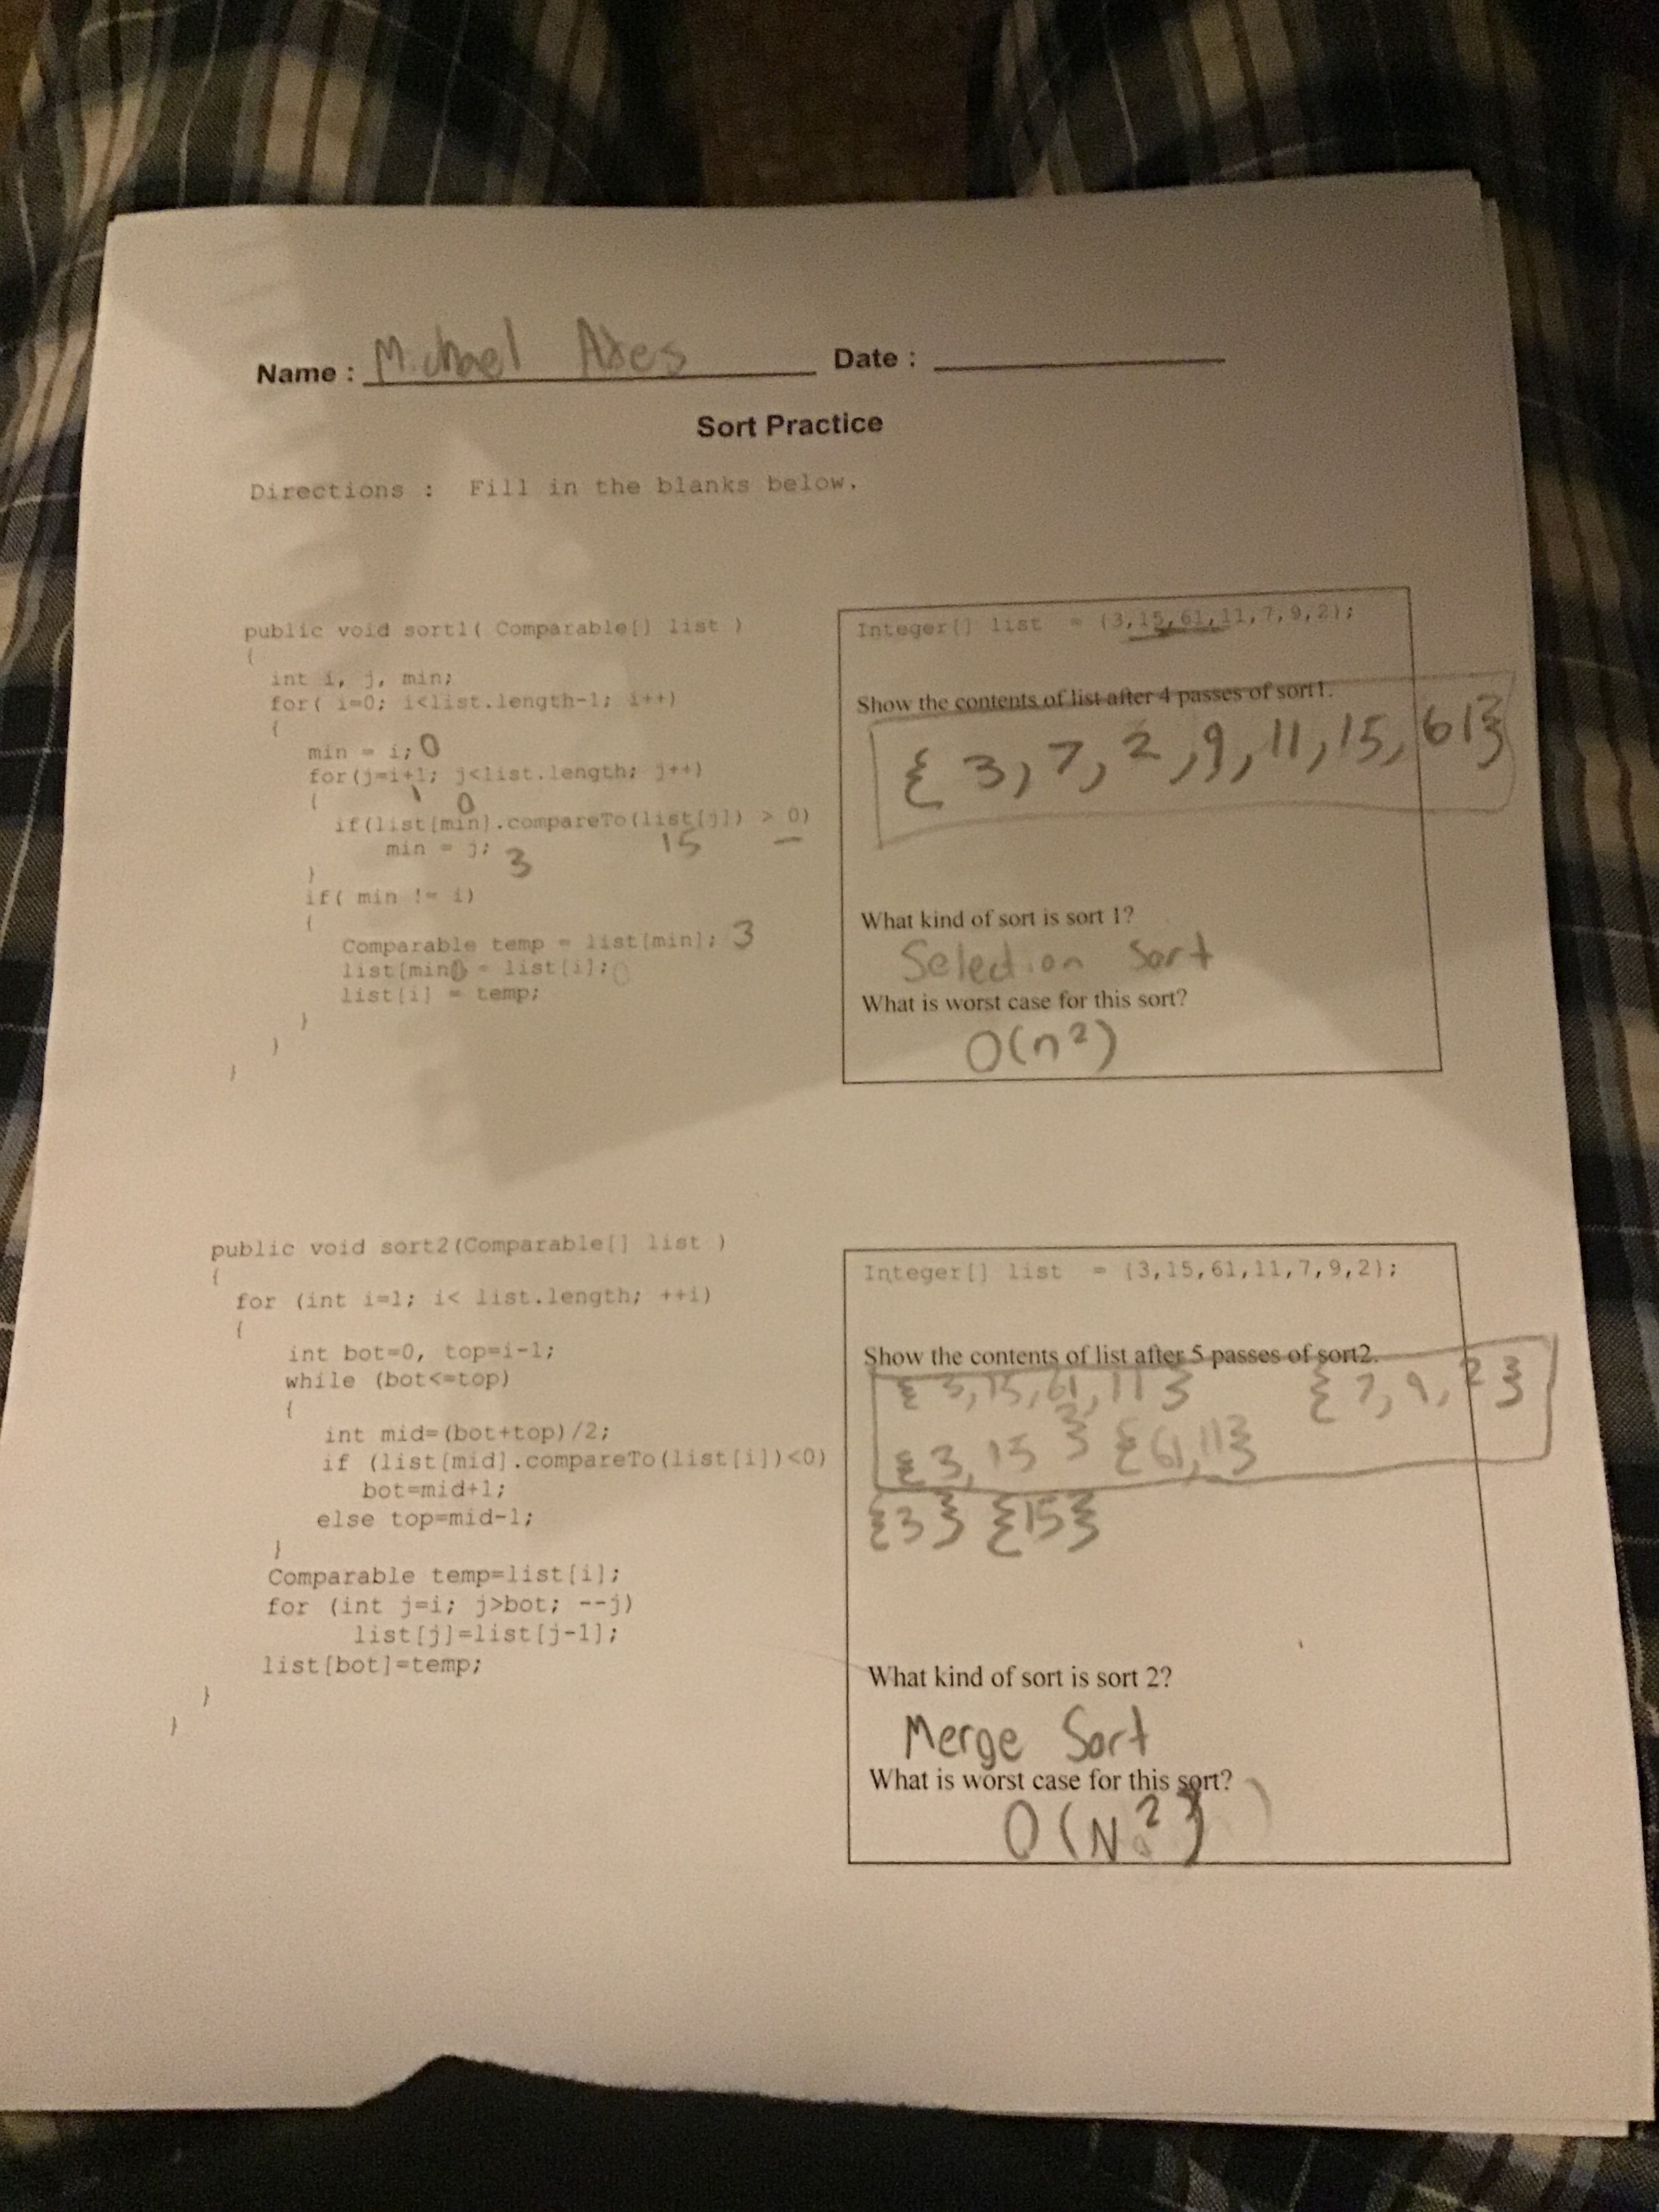 Name : Michael Date :
Sort Practice
Directions : Fill in the blanks below.
public void sort1( Comparable[] list )
{
int i, j, min;
for( i=0; i<list.length-1; i++)
{
min = i; 0
for(j=i+1; j<list.length; j++)
{ 1 0
if(list[min].compareTo(list[j]) > 0)
min = j; 3 15
}
if( min != i)
{
Comparable temp = list[min]; 3
list[min] = list[i]; 0
list[i] = temp;
}
}
}
Integer[] list = {3,15,61,11,7,9,2};
Show the contents of list after 4 passes of sort1.
{ 3, 7, 2, 9, 11, 15, 61}
What kind of sort is sort 1?
Selection Sort
What is worst case for this sort?
O(n²)
public void sort2(Comparable[] list )
{
for (int i=1; i< list.length; ++i)
{
int bot=0, top=i-1;
while (bot<=top)
{
int mid=(bot+top)/2;
if (list[mid].compareTo(list[i])<0)
bot=mid+1;
else top=mid-1;
}
Comparable temp=list[i];
for (int j=i; j>bot; --j)
list[j]=list[j-1];
list[bot]=temp;
}
}
Integer[] list = {3,15,61,11,7,9,2};
Show the contents of list after 5 passes of sort2.
{ 3, 15, 61, 11 } { 7, 9, 2 }
{ 3, 15 } { 61, 11}
{3} {15}
What kind of sort is sort 2?
Merge Sort
What is worst case for this sort?
O(N²)